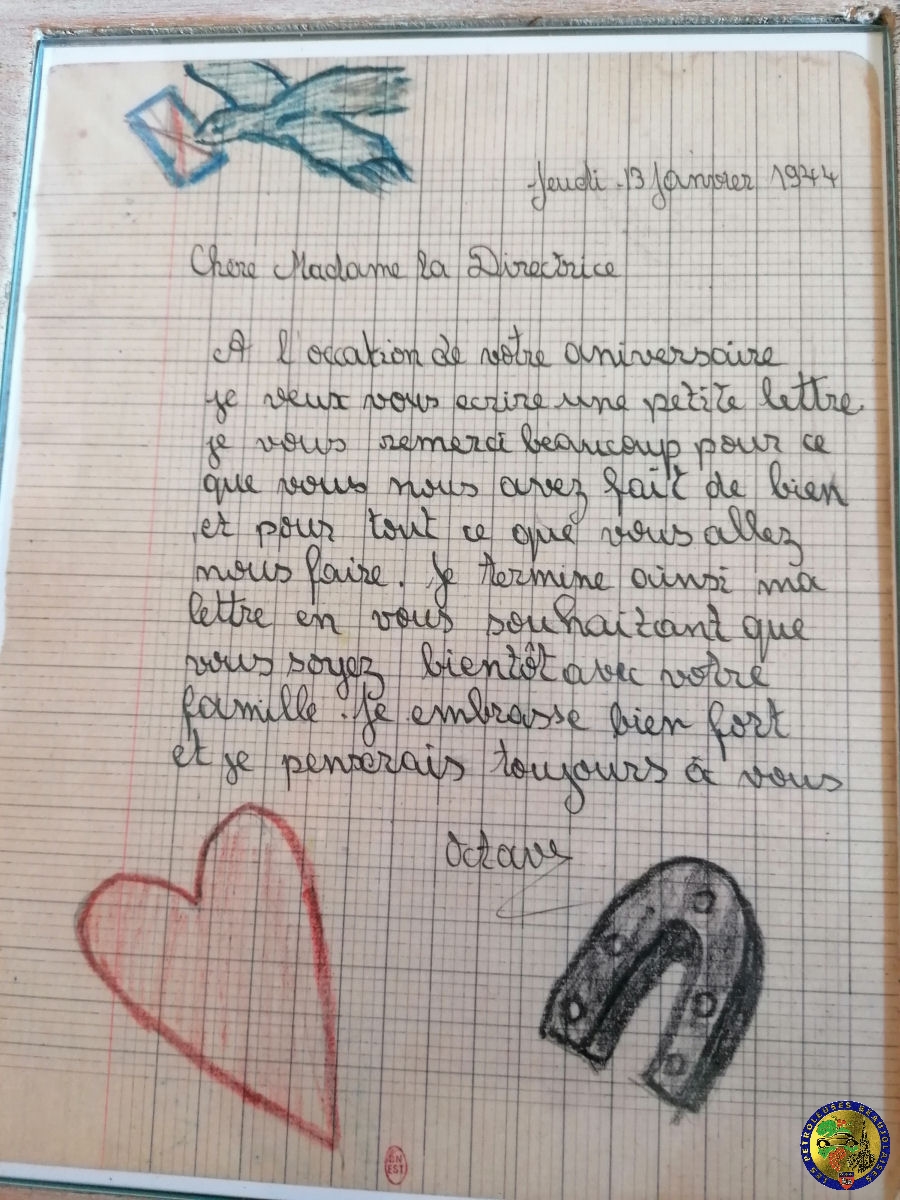 Jeudi 13 Janvier 1944
Chere Madame la Directrice
A l'occation de votre aniversaire
je veux vous ecrire une petite lettre
je vous remerci beaucoup pour ce
que vous nous avez fait de bien
et pour tout ce que vous allez
nous faire. Je termine ainsi ma
lettre en vous souhaitant que
vous soyez bientôt avec votre
famille. Je embrasse bien fort
et je penserais toujours à vous
Octave
BN
EST
LES PETROLEUSES BEAUJOLAISES